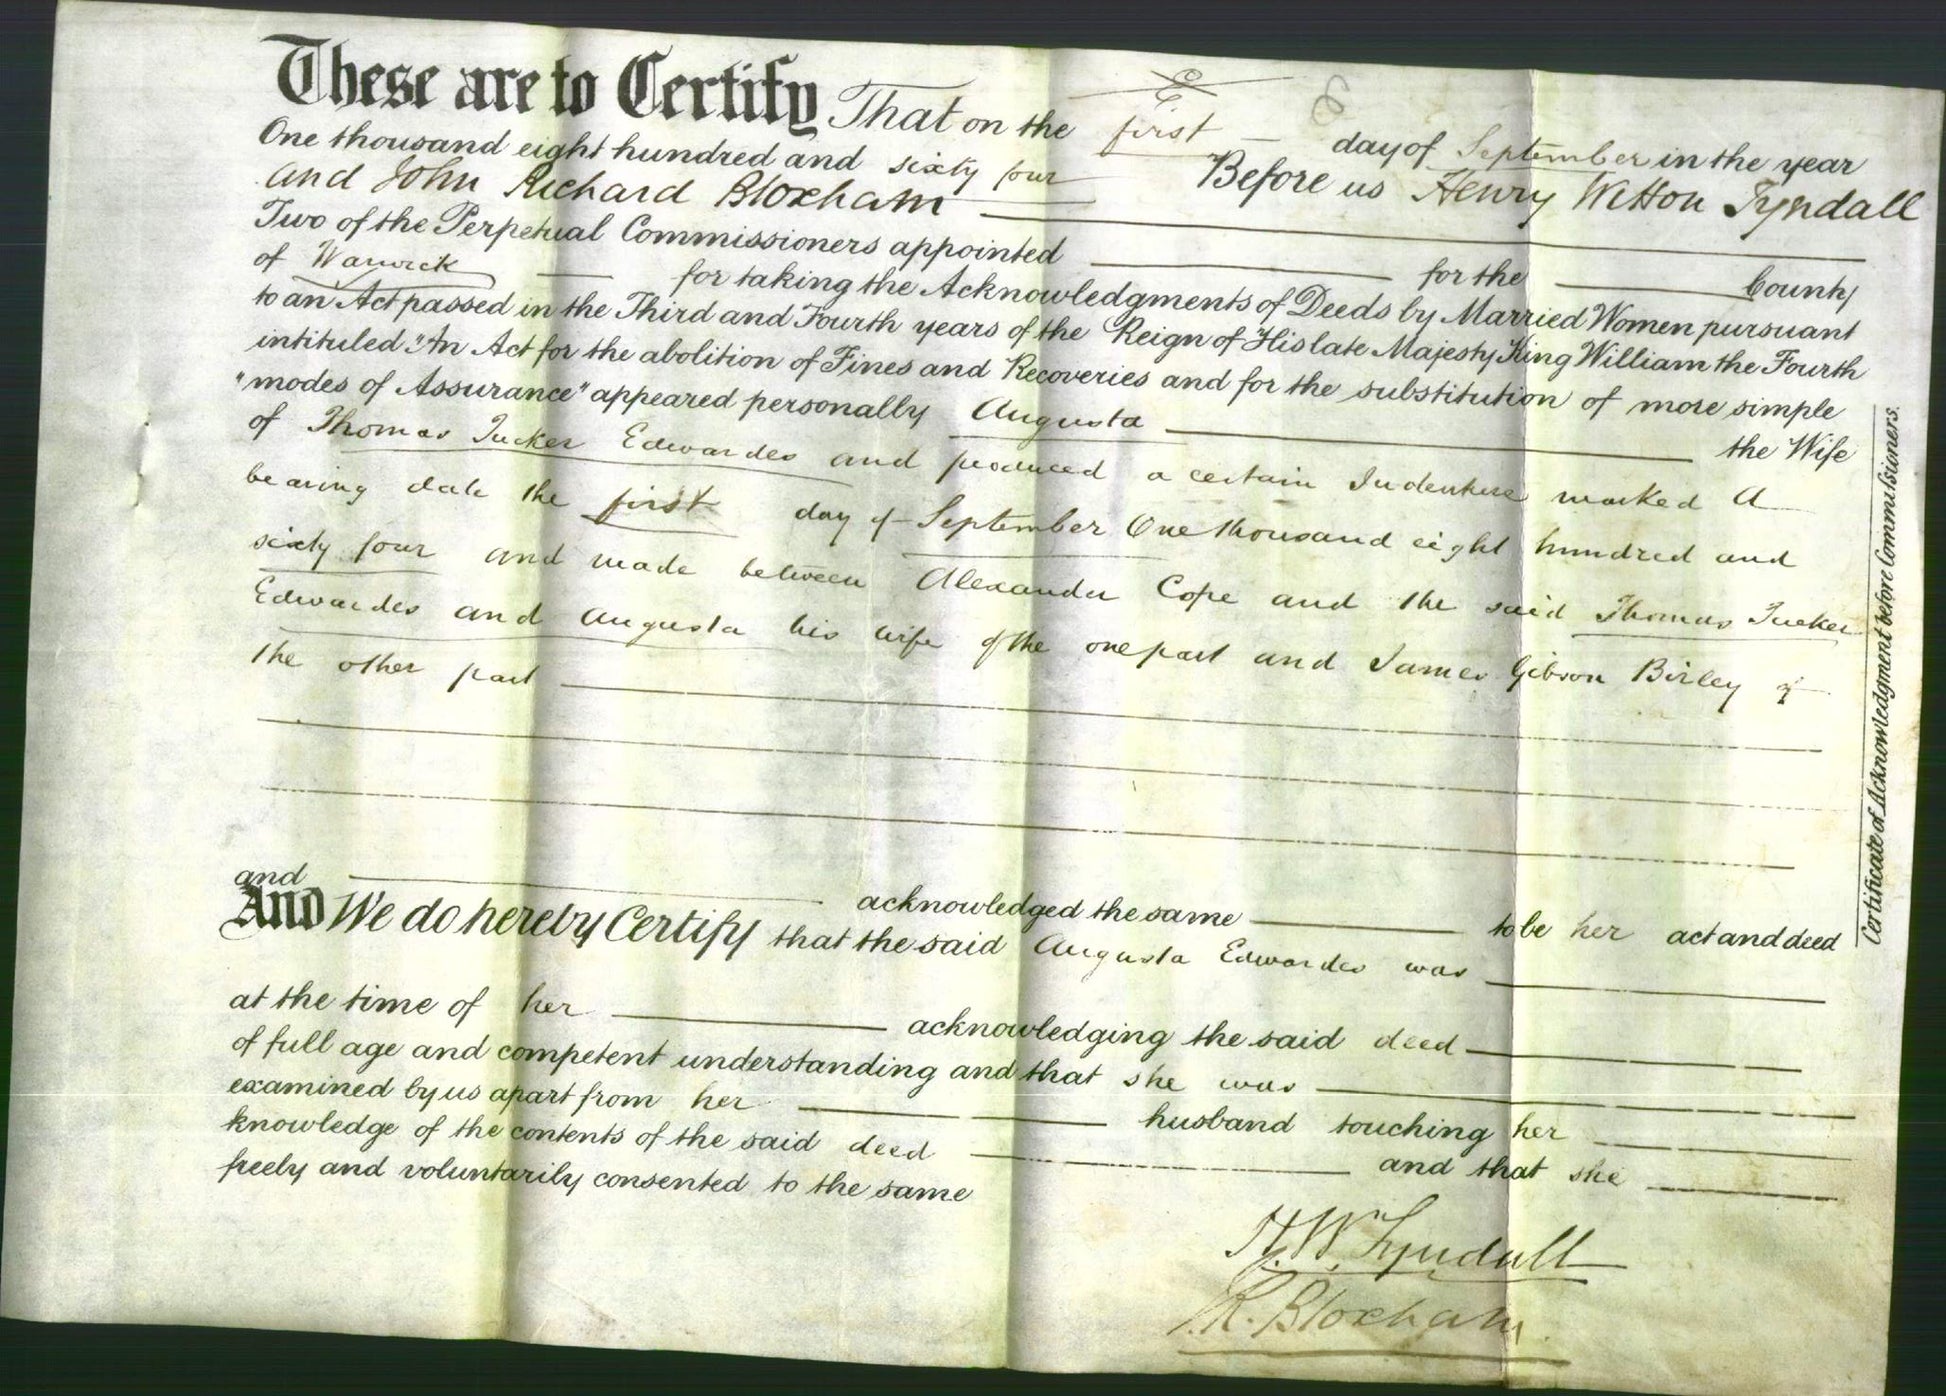 These are to Certify That on the first day of September in the year
One thousand eight hundred and sixty four Before us Henry Witton Tyndall
and John Richard Bloxham
Two of the Perpetual Commissioners appointed for the County
of Warwick for taking the Acknowledgments of Deeds by Married Women pursuant
to an Act passed in the Third and Fourth years of the Reign of His late Majesty King William the Fourth
intituled "An Act for the abolition of Fines and Recoveries and for the substitution of more simple
"modes of Assurance" appeared personally Augusta the Wife
of Thomas Tucker Edwardes and produced a certain Indenture marked A
bearing date the first day of September One thousand eight hundred and
sixty four and made between Alexander Cope and the said Thomas Tucker
Edwardes and Augusta his wife of the one part and James Gibson Birley of
the other part
and acknowledged the same to be her act and deed
And We do hereby Certify that the said Augusta Edwardes was
at the time of her acknowledging the said deed
of full age and competent understanding and that she was
examined by us apart from her husband touching her
knowledge of the contents of the said deed and that she
freely and voluntarily consented to the same
H. W. Tyndall
J. R. Bloxham
Certificate of Acknowledgment before Commissioners.